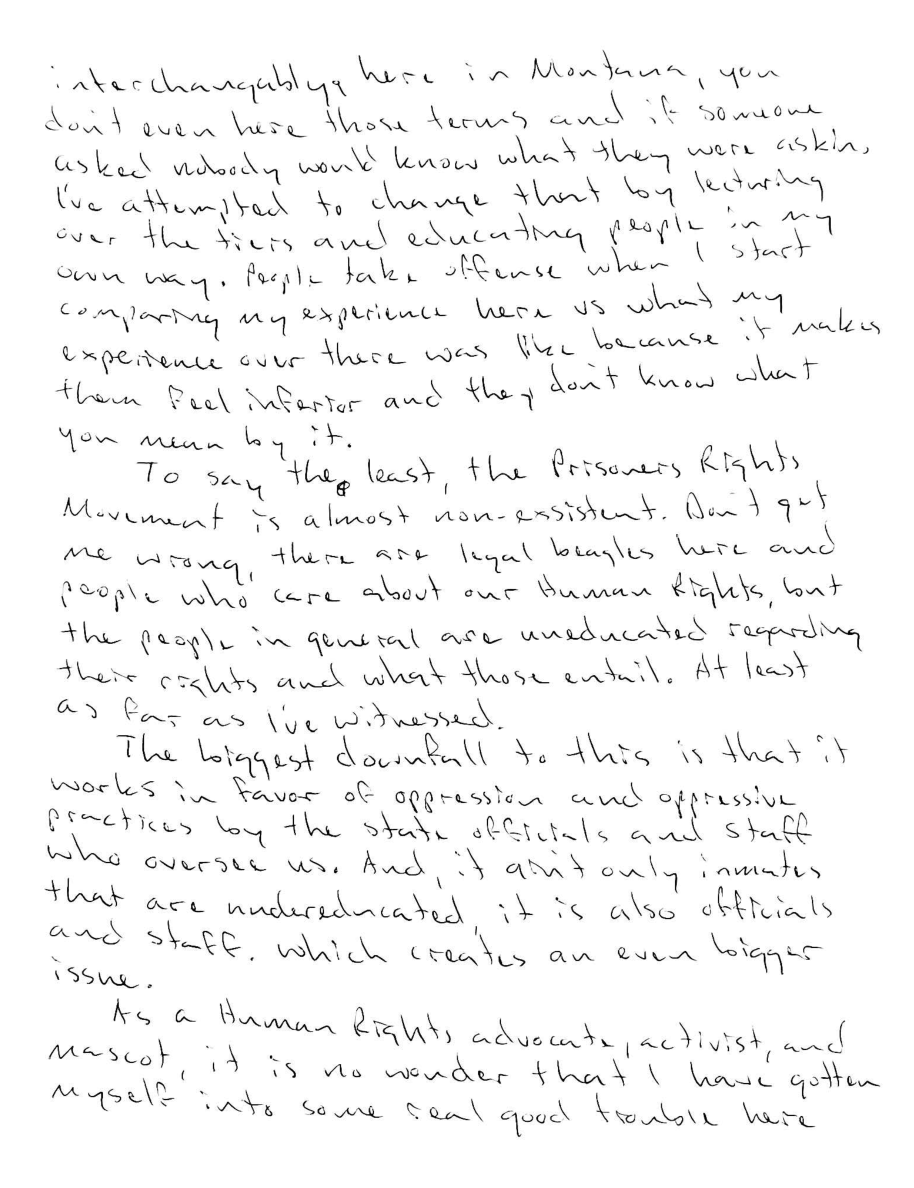 interchangably, here in Montana, you
don't even here those terms and if someone
asked nobody would know what they were askin,
I've attempted to change that by lecturing
over the tiers and educating people in my
own way. People take offense when I start
comparing my experience here vs what my
experience over there was like because it makes
them feel inferior and they don't know what
you mean by it.
To say the least, the Prisoners Rights
Movement is almost non-exsistent. Don't get
me wrong, there are legal beagles here and
people who care about our Human Rights, but
the people in general are uneducated regarding
their rights and what those entail. At least
as far as I've witnessed.
The biggest downfall to this is that it
works in favor of oppression and oppressive
practices by the state officials and staff
who oversee us. And, it ain't only inmates
that are undereducated, it is also officials
and staff. which creates an even bigger
issue.
As a Human Rights advocate, activist, and
mascot, it is no wonder that I have gotten
myself into some real good trouble here